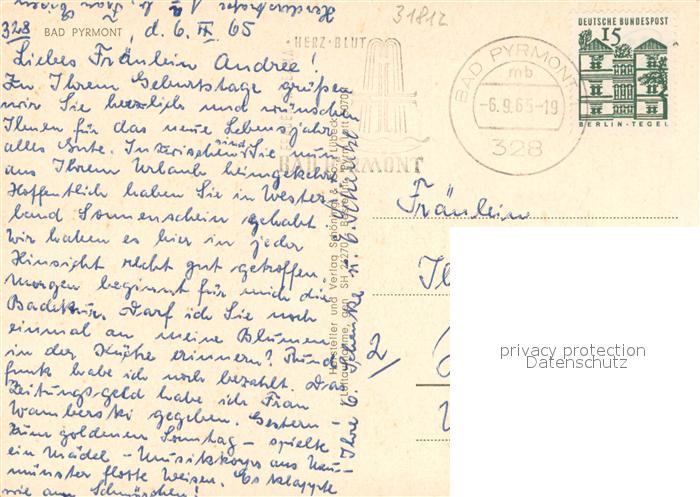 31812
328 BAD PYRMONT, d. 6. IX. 65
Liebes Fräulein Andree!
Zu Ihrem Geburtstage grüßen
wir Sie herzlich und wünschen
Ihnen für das neue Lebensjahr
alles Gute. Inzwischen sind Sie nun
aus Ihrem Urlaub heimgekehrt.
Hoffentlich haben Sie in Wester
land Sonnenschein gehabt.
Wir haben es hier in jeder
Hinsicht recht gut getroffen.
Morgen beginnt für mich die
Badekur. Darf ich Sie noch
einmal an meine Blumen
in der Küche erinnern? Rund
funk habe ich noch bezahlt. Das
Zeitungsgeld habe ich Frau
Wamberski gegeben. Gestern –
zum goldenen Sonntag – spielte
ein Mädel-Musikkorps aus Neu-
münster flotte Weisen. Es klappte
wie am Schnürchen!
Ihre
HERZ · BLUT
BAD PYRMONT
BAD PYRMONT
mb
-6.9.65-19
328
DEUTSCHE BUNDESPOST
15
BERLIN-TEGEL
Hersteller und Verlag Schöning & Co., Lübeck
Luftaufnahme, gen. SH
Fräulein
2/
privacy protection
Datenschutz